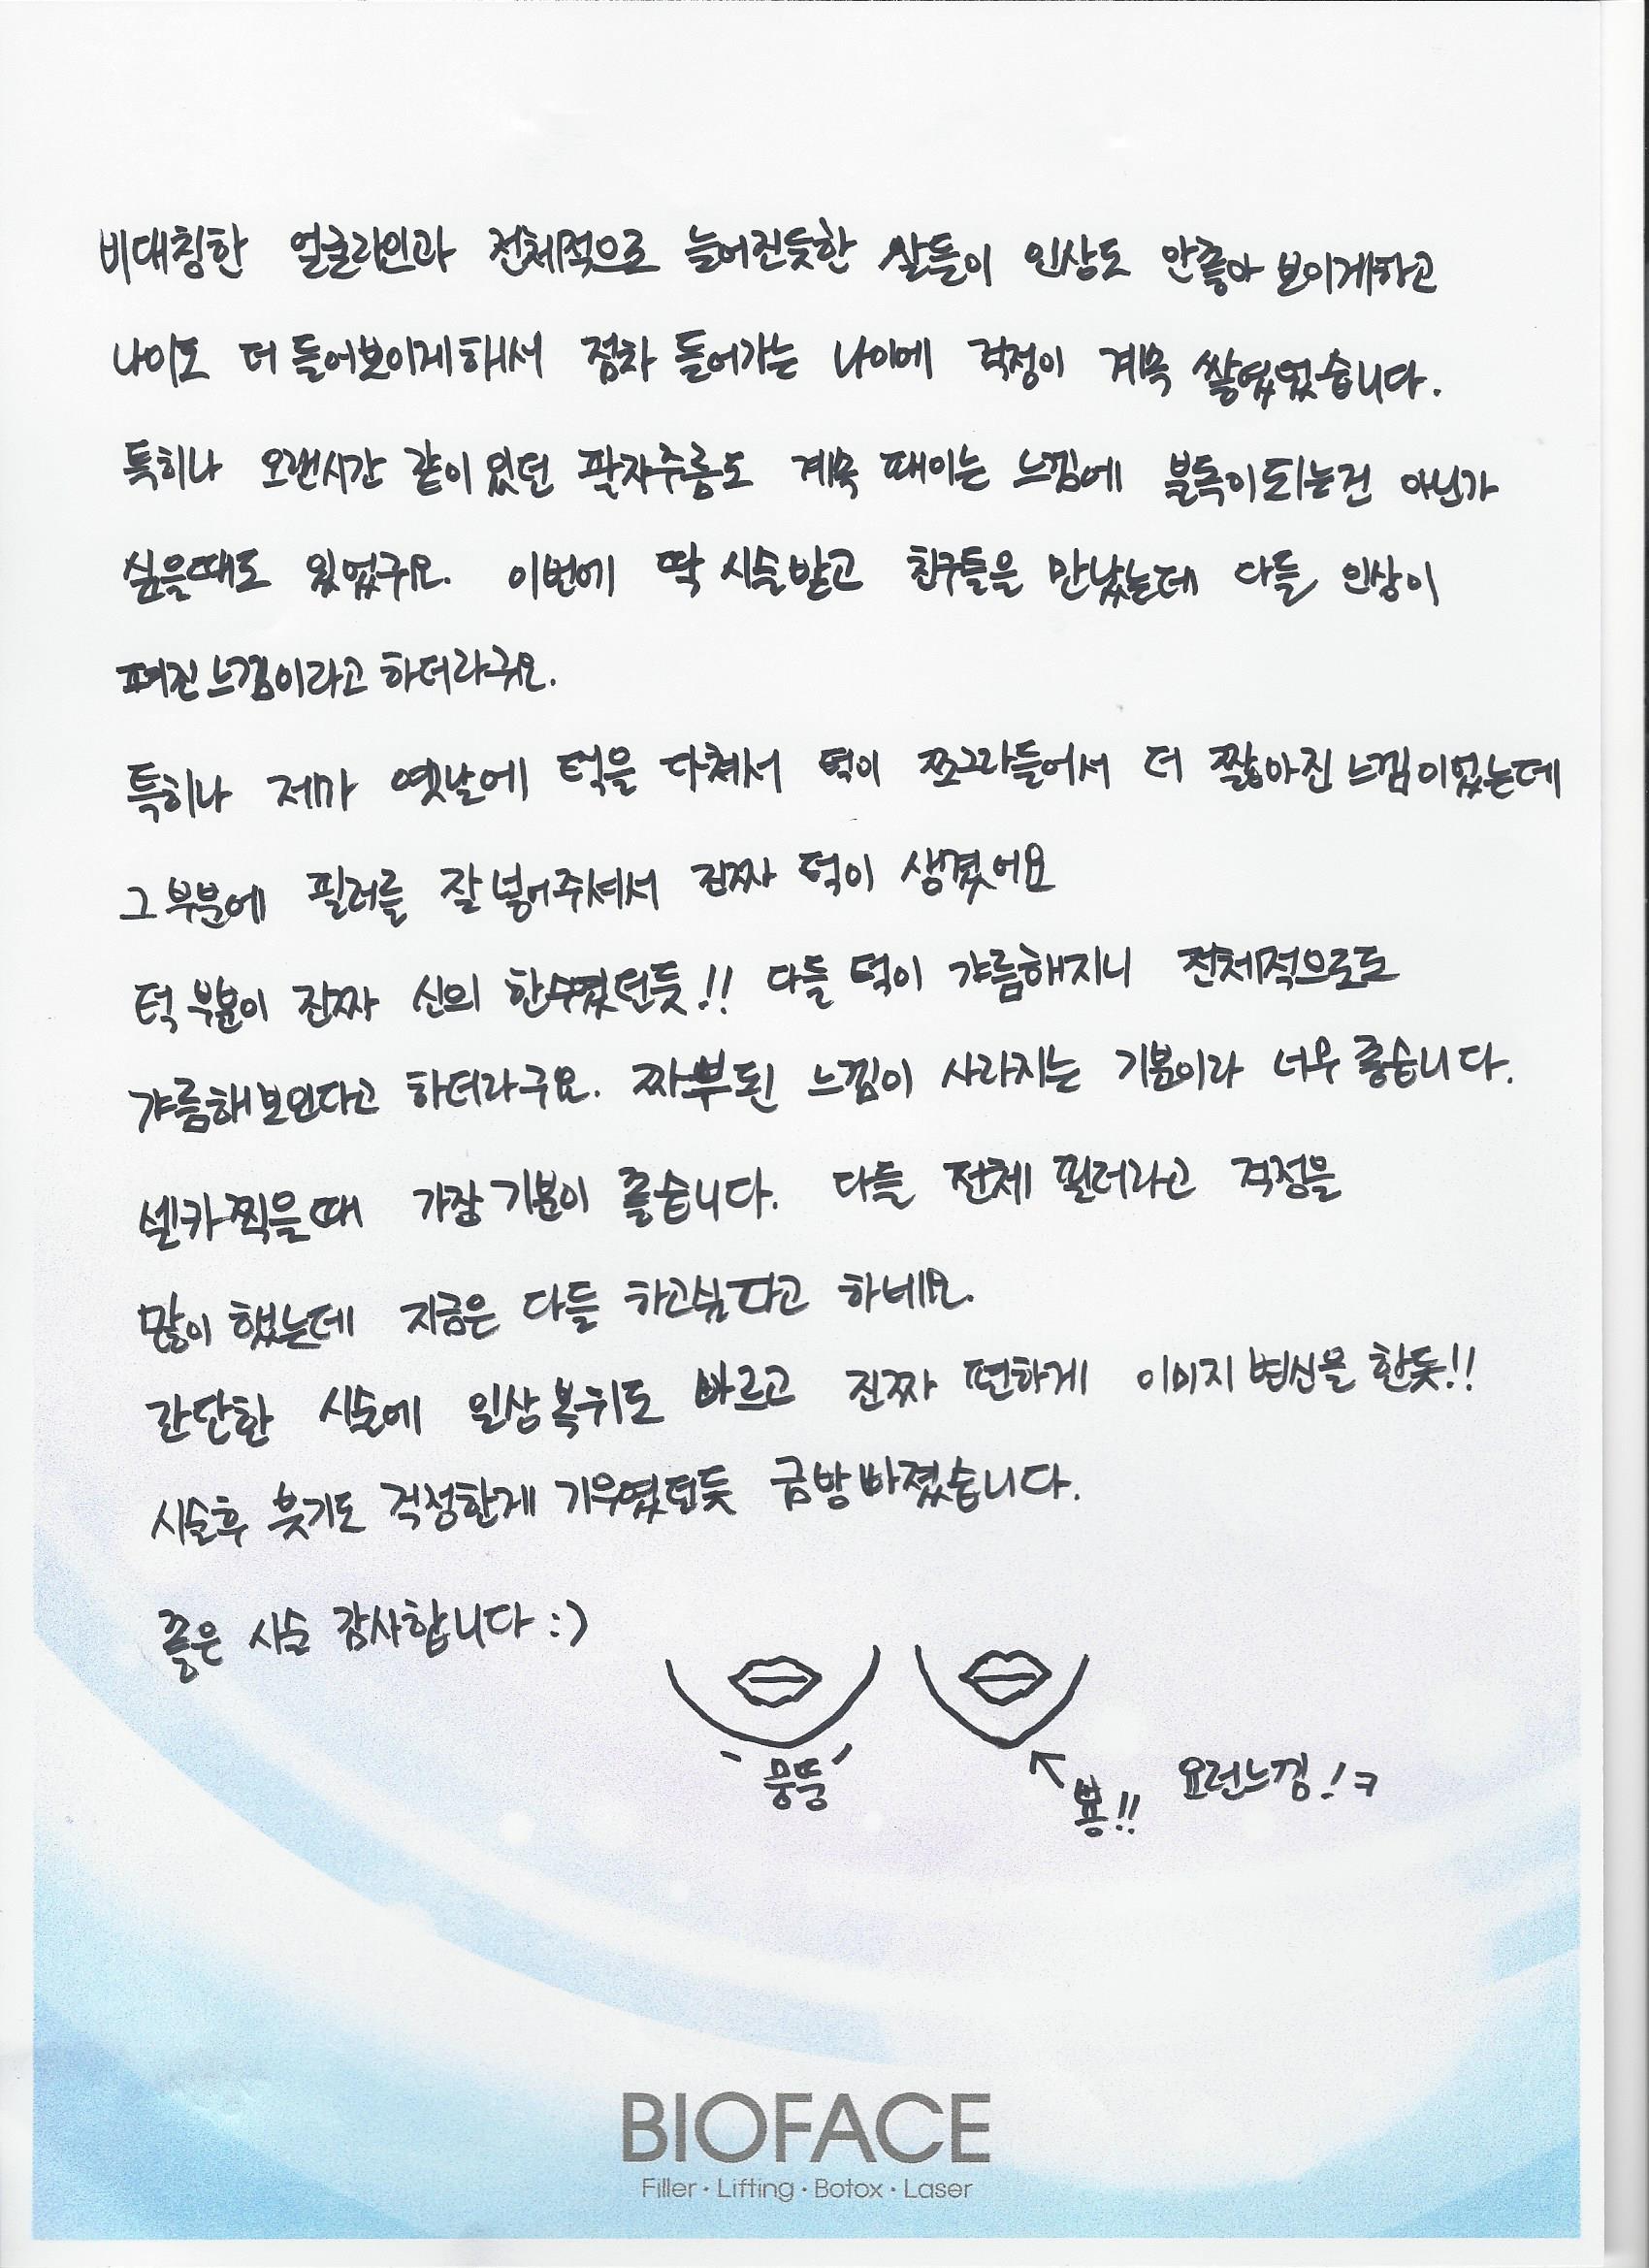 비대칭한 얼굴라인과 전체적으로 늘어진듯한 살들이 인상도 안좋아 보이게하고
나이도 더 들어보이게해서 점차 들어가는 나이에 걱정이 계속 쌓였었습니다.
특히나 오랜시간 같이 있던 팔자주름도 계속 패이는 느낌에 볼독이되는건 아닌가
싶을때도 있었구요. 이번에 딱 시술받고 친구들을 만났는데 다들 인상이
펴진 느낌이라고 하더라구요.
특히나 제가 옛날에 턱을 다쳐서 턱이 쪼그라들어서 더 짧아진 느낌이었는데
그 부분에 필러를 잘 넣어주셔서 진짜 턱이 생겼어요
턱 부분이 진짜 신의 한수였던듯!! 다들 턱이 갸름해지니 전체적으로도
갸름해보인다고 하더라구요. 짜부된 느낌이 사라지는 기분이라 너무 좋습니다.
셀카찍을때 가장 기분이 좋습니다. 다들 전체 필러라고 걱정을
많이 했는데 지금은 다들 하고싶다고 하네요.
간단한 시술에 일상복귀도 빠르고 진짜 편하게 이미지 변신을 한듯!!
시술후 붓기도 걱정한게 기우였던듯 금방 빠졌습니다.
좋은 시술 감사합니다 :)
뭉뚱
뿅!! 요런느낌!ㅋ
BIOFACE
Filler · Lifting · Botox · Laser